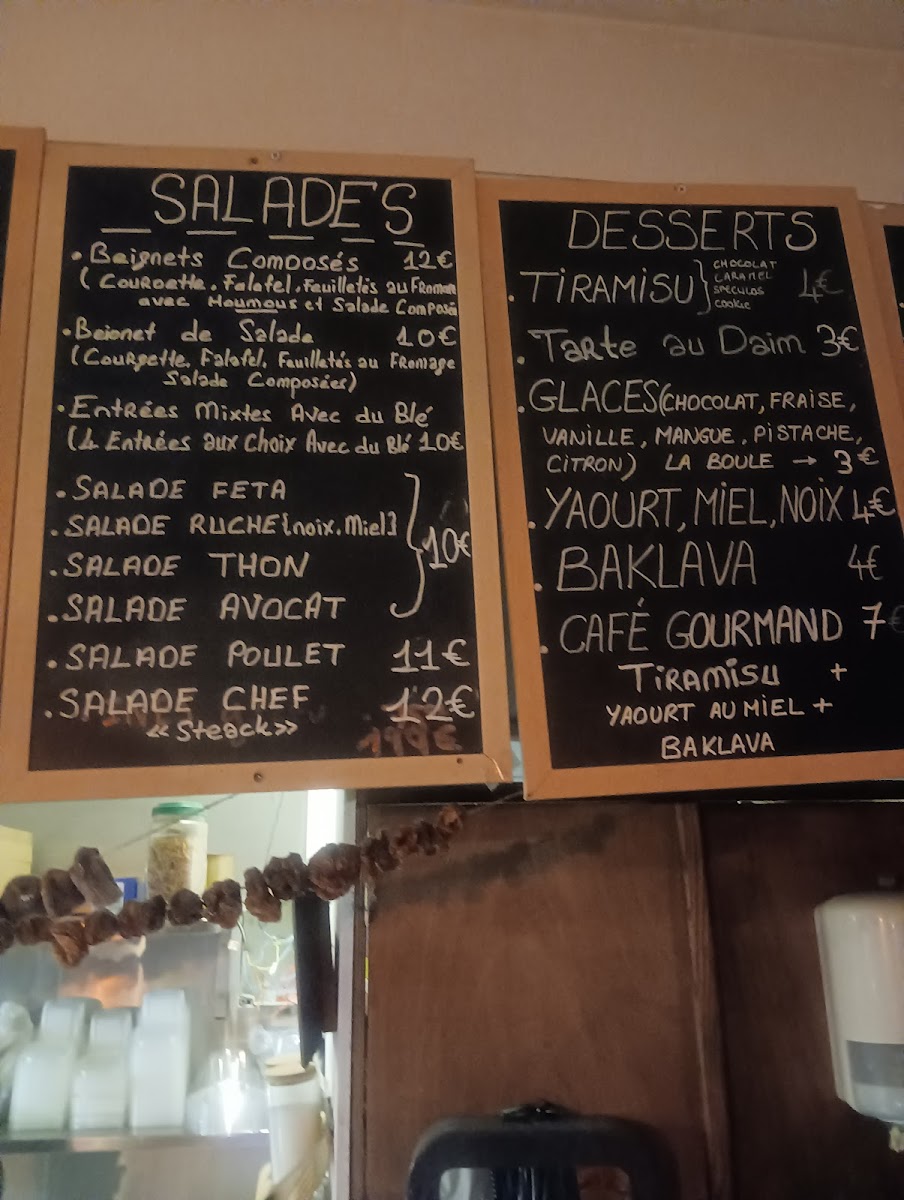 SALADES
• Beignets Composés 12€
( Courgette. Falafel. Feuilletés au From
avec Houmous et Salade Composé
• Beignet de Salade 10€
(Courgette, Falafel, Feuilletés au Fromage
Salade Composées)
• Entrées Mixtes Avec du Blé
(4 Entrées aux Choix Avec du Blé 10€
• SALADE FETA
• SALADE RUCHE {noix, Miel}
10€
• SALADE THON
• SALADE AVOCAT
• SALADE POULET 11€
• SALADE CHEF 12€
« Steack »
DESSERTS
• TIRAMISU } CHOCOLAT
CARAMEL
SPECULOS
COOKIE
4€
• Tarte au Daim 3€
• GLACES (CHOCOLAT, FRAISE,
VANILLE, MANGUE, PISTACHE,
CITRON) LA BOULE → 3€
• YAOURT, MIEL, NOIX 4€
• BAKLAVA 4€
• CAFÉ GOURMAND 7€
TIRAMISU +
YAOURT AU MIEL +
BAKLAVA